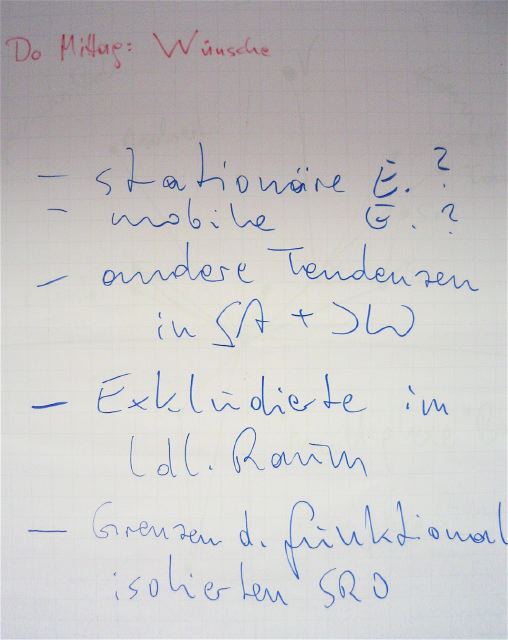 Do Mittag: Wünsche
- stationäre E. ?
- mobile E. ?
- andere Tendenzen
in SA +
- Exkludierte im
ldl. Raum
- Grenzen d. funktional
isolierten SRO